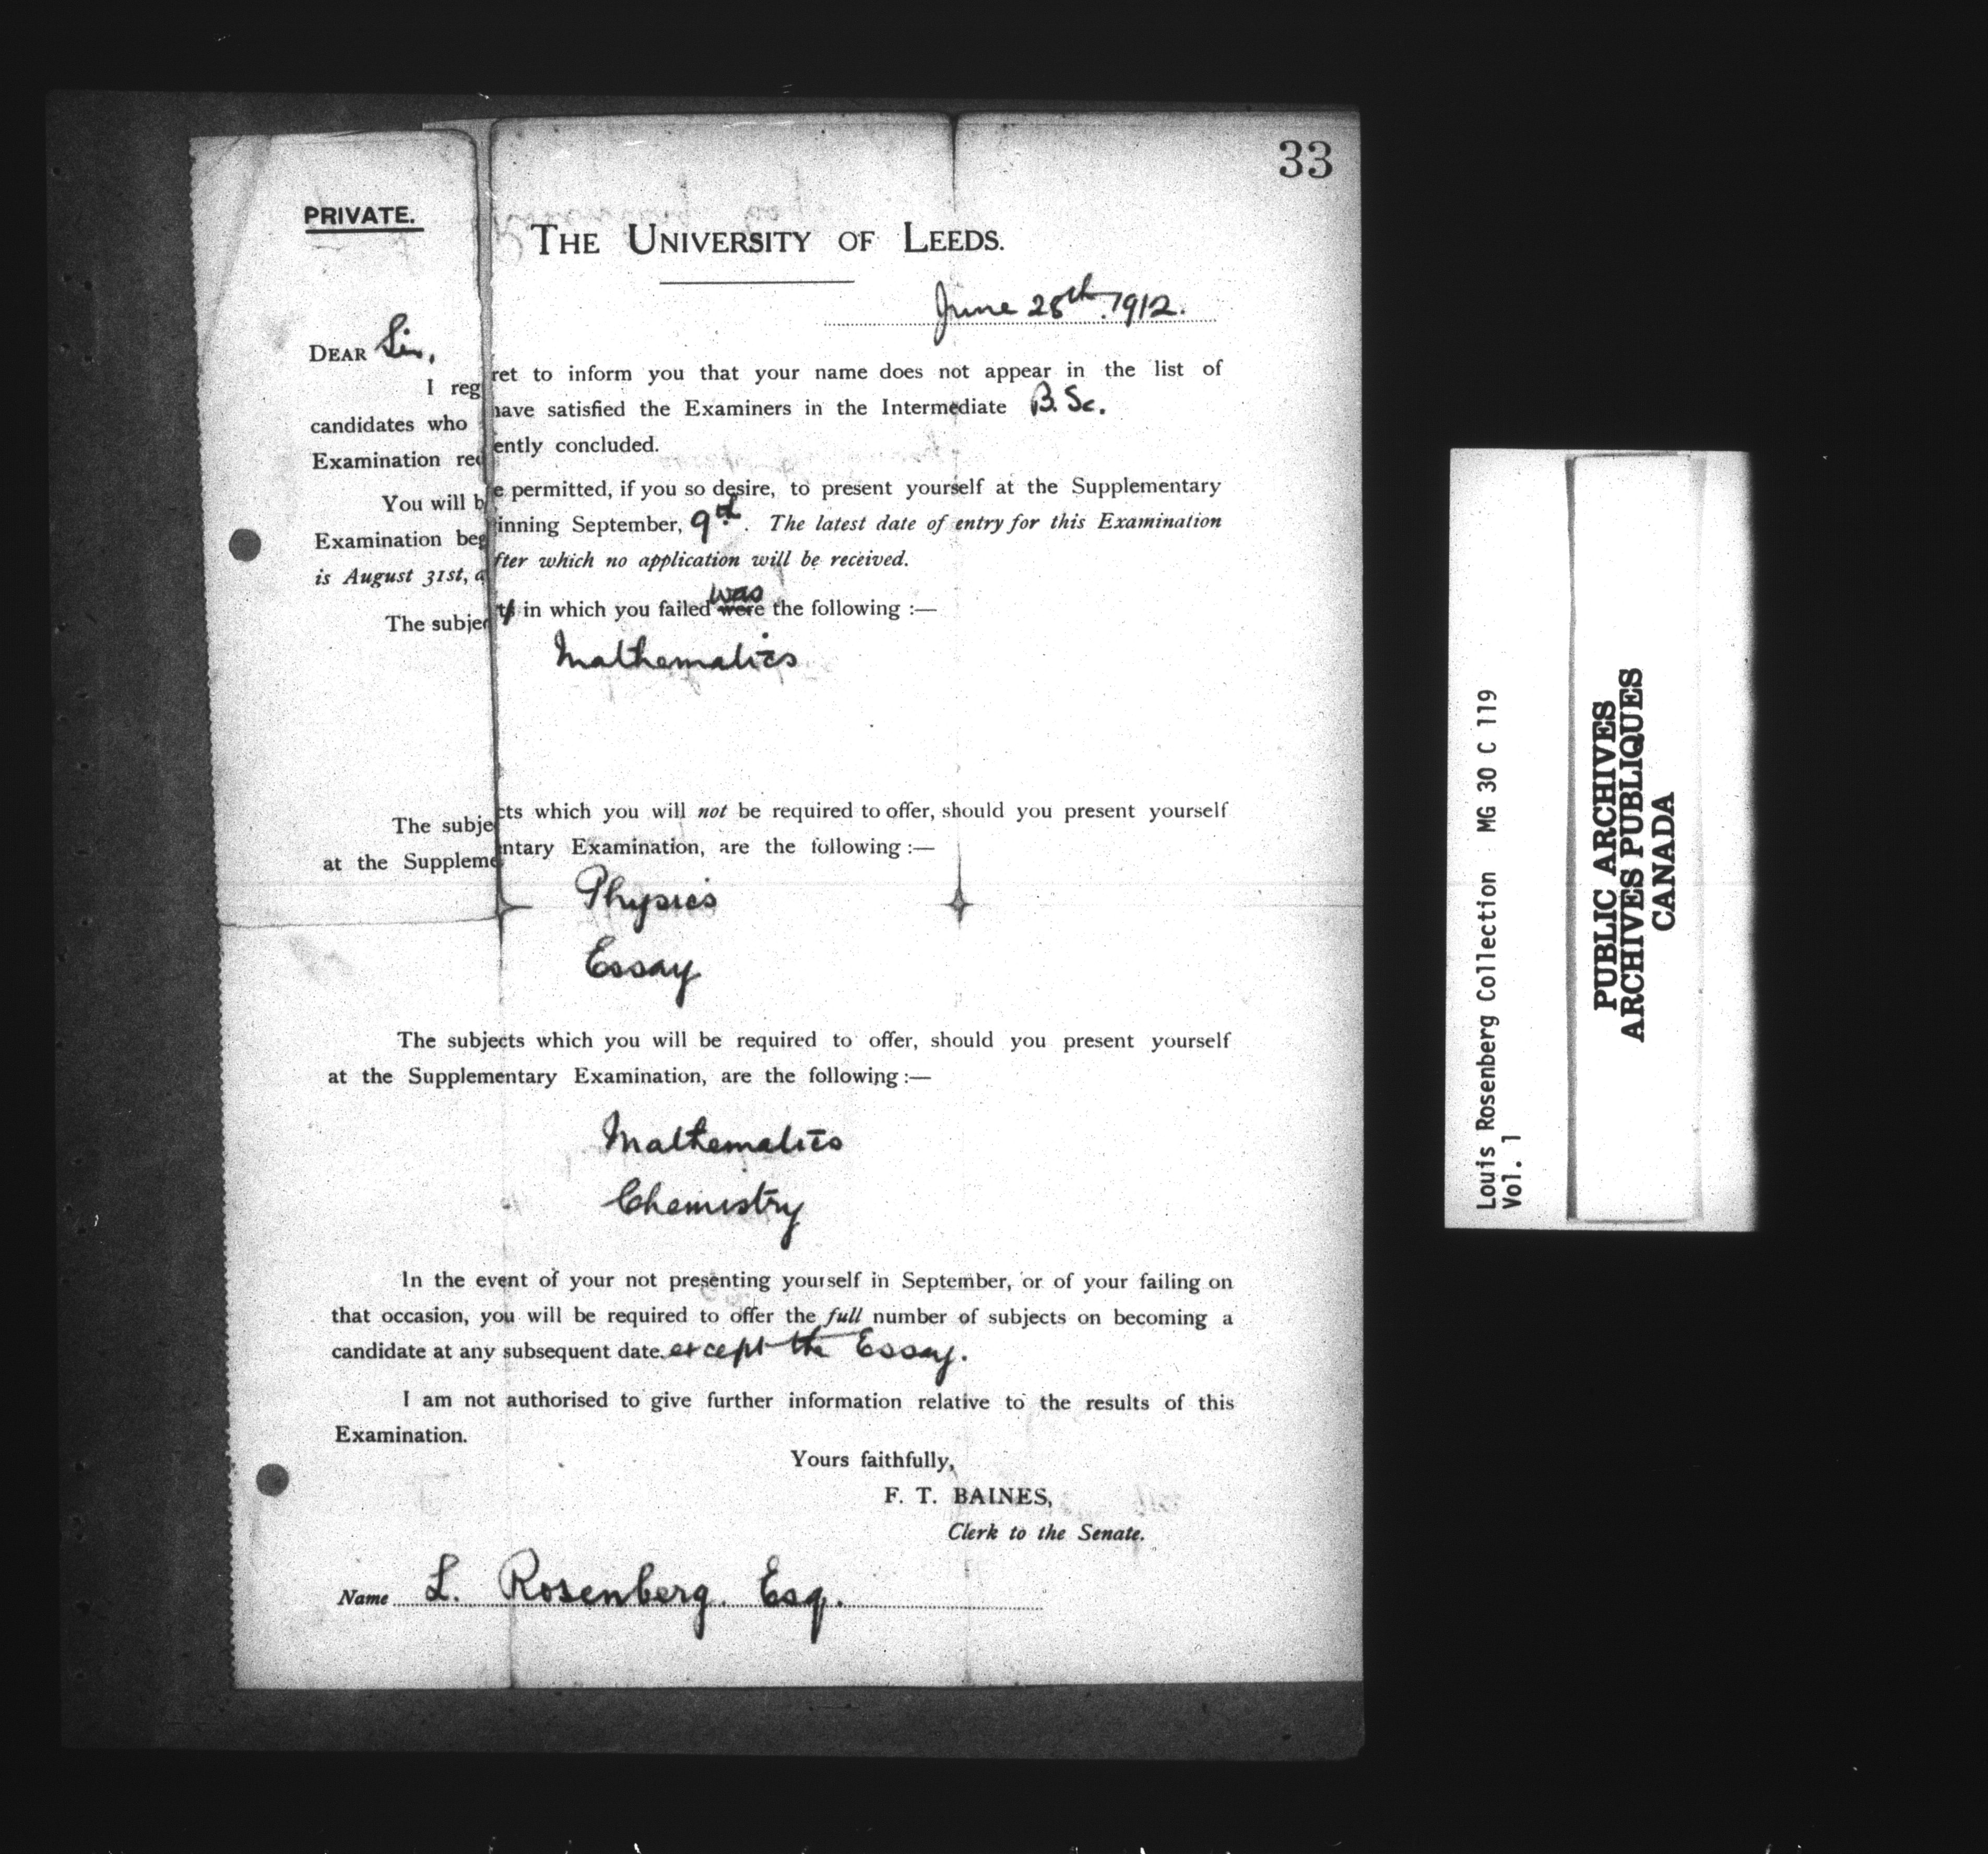 33
PRIVATE.
THE UNIVERSITY OF LEEDS.
June 28th. 1912.
DEAR Sir,
I regret to inform you that your name does not appear in the list of
candidates who have satisfied the Examiners in the Intermediate B.Sc.
Examination recently concluded.
You will be permitted, if you so desire, to present yourself at the Supplementary
Examination beginning September, 9th. The latest date of entry for this Examination
is August 31st, after which no application will be received.
was
The subjects in which you failed were the following :—
Mathematics
The subjects which you will not be required to offer, should you present yourself
at the Supplementary Examination, are the following :—
Physics
Essay
The subjects which you will be required to offer, should you present yourself
at the Supplementary Examination, are the following :—
Mathematics
Chemistry
In the event of your not presenting yourself in September, or of your failing on
that occasion, you will be required to offer the full number of subjects on becoming a
candidate at any subsequent date. except the Essay.
I am not authorised to give further information relative to the results of this
Examination.
Yours faithfully,
F. T. BAINES,
Clerk to the Senate.
Name L. Rosenberg. Esq.
Louis Rosenberg Collection MG 30 C 119
Vol. 1
PUBLIC ARCHIVES
ARCHIVES PUBLIQUES
CANADA